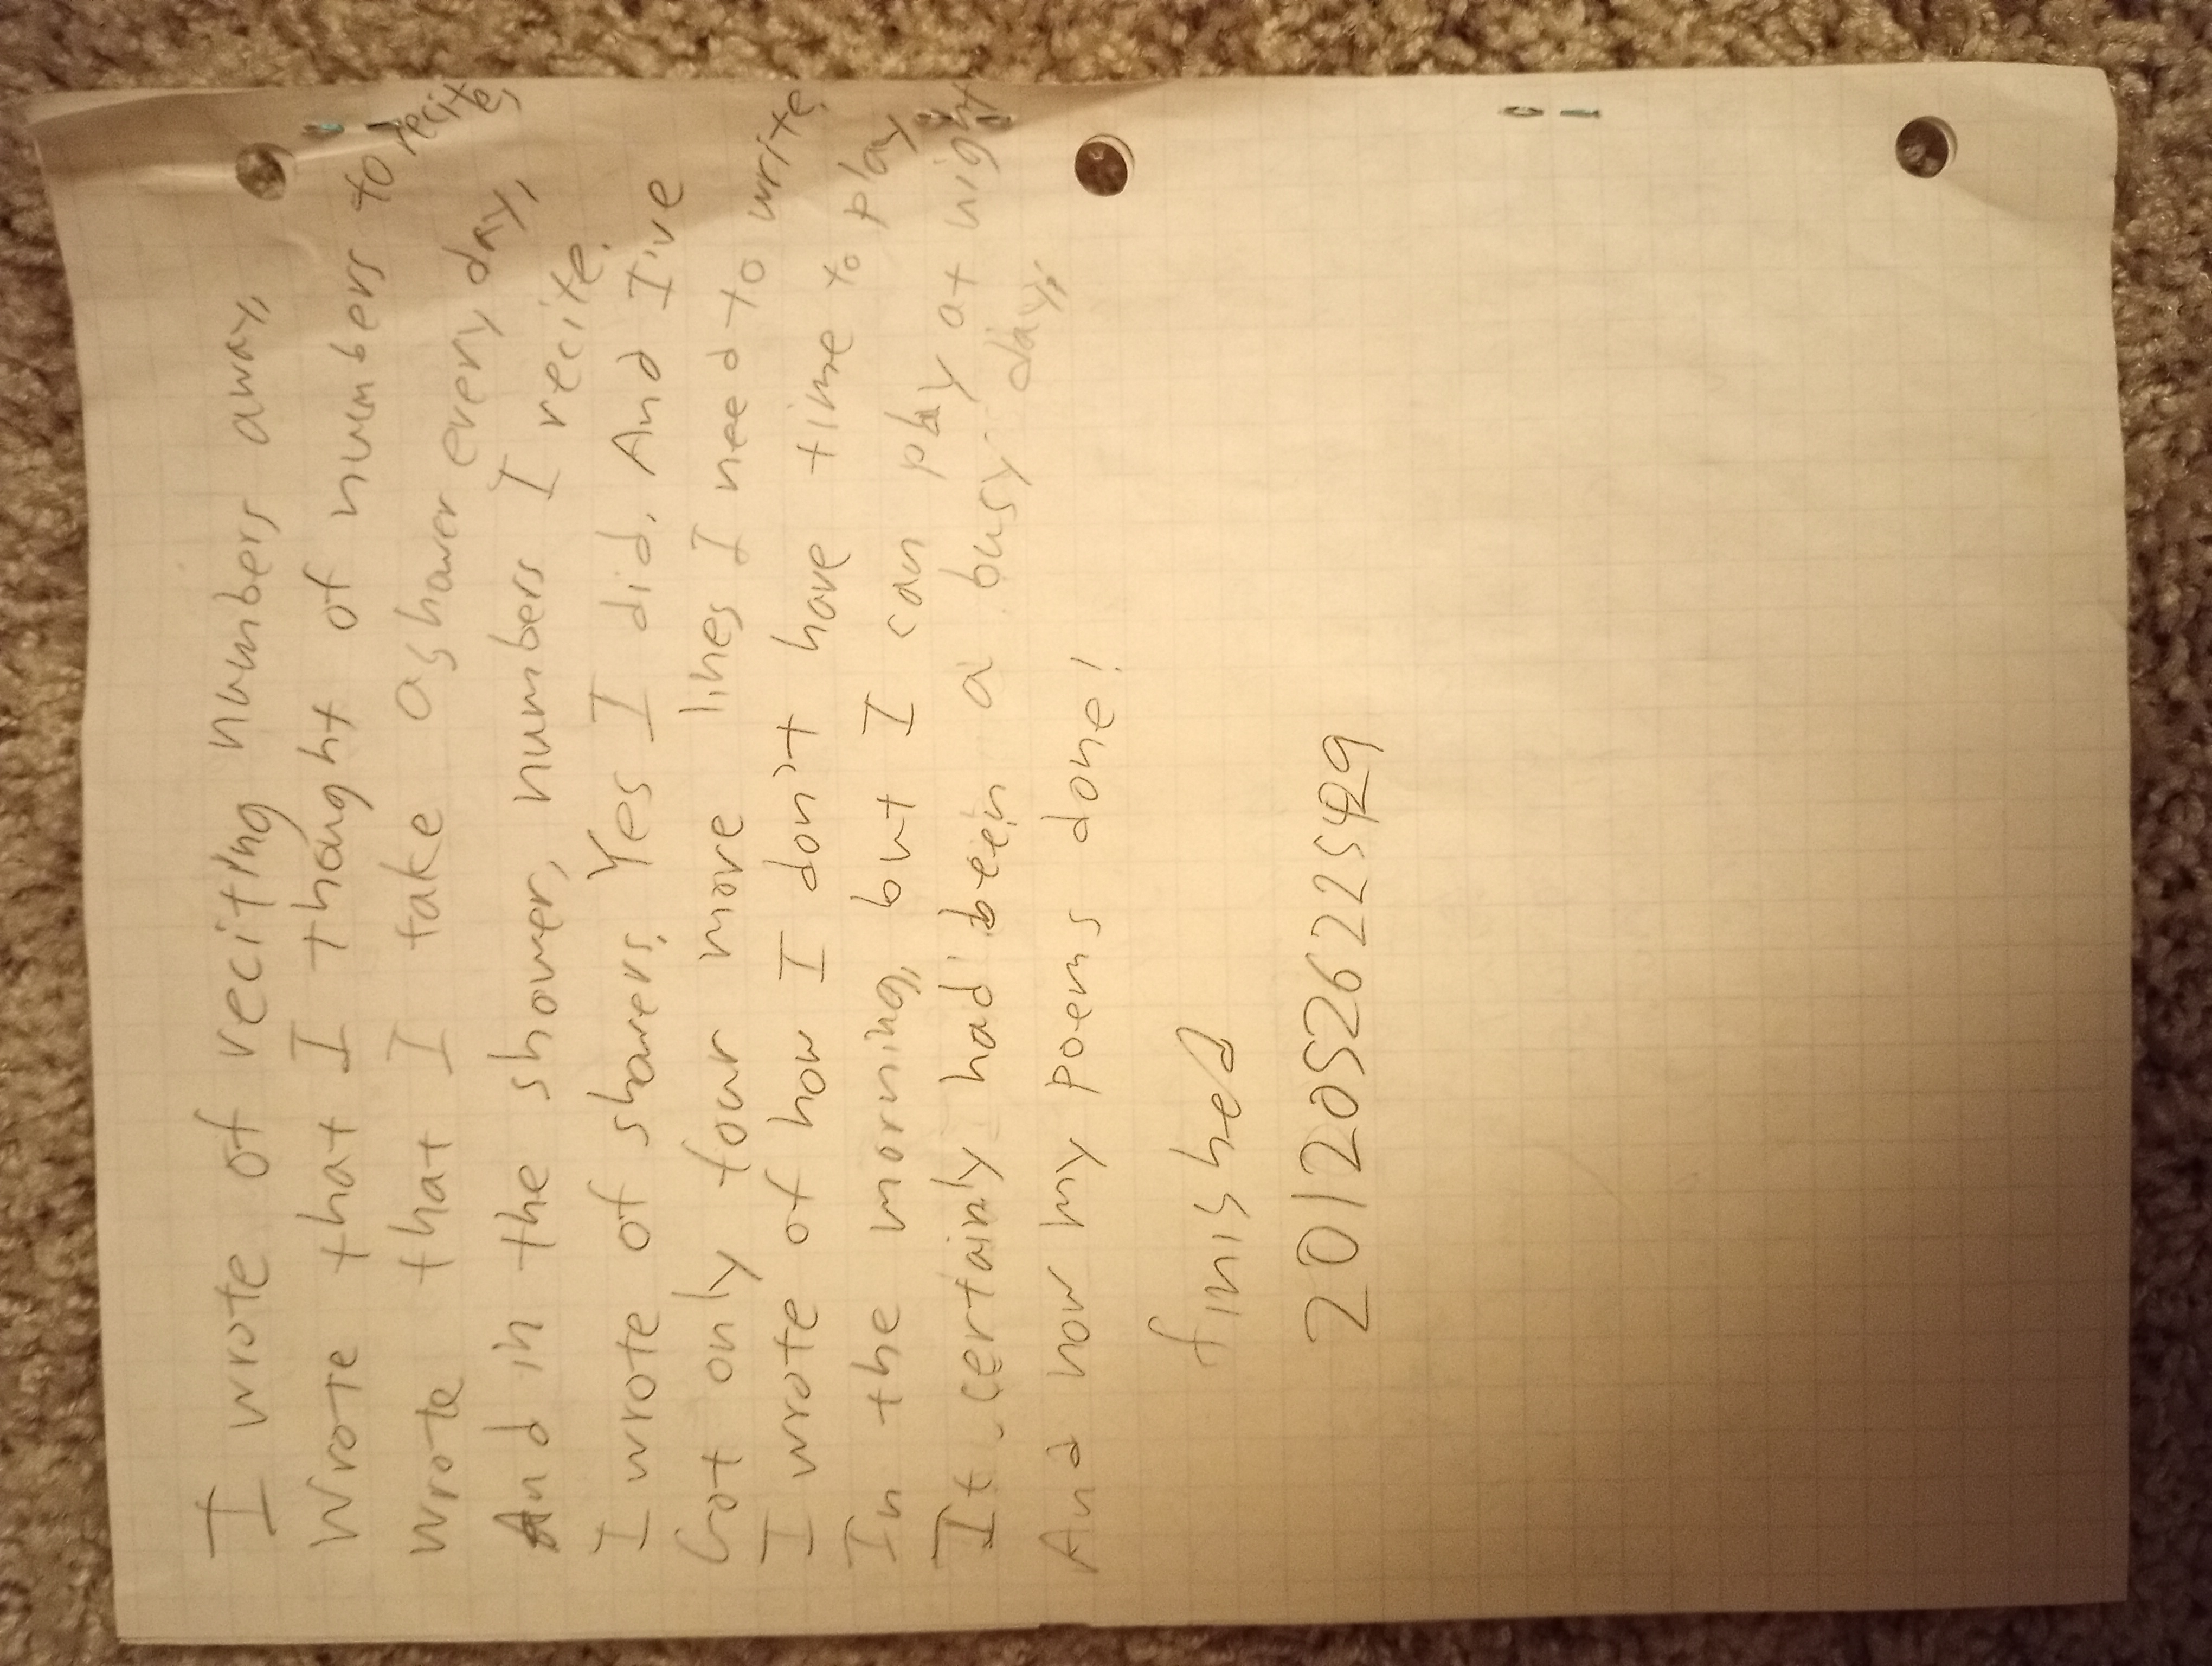 I wrote of reciting numbers away,
Wrote that I thought of numbers to recite,
Wrote that I take a shower every day,
And in the shower, numbers I recite.
I wrote of showers. Yes I did. And I've
Got only four more lines I need to write.
I wrote of how I don't have time to play
In the morning, but I can play at night.
It certainly had been a busy day,
And now my poems done!
finished